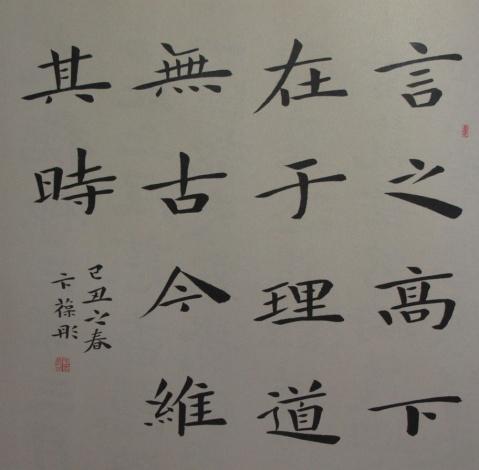 言之高下
在于理道
無古今維
其時
己丑之春
卞葆彤